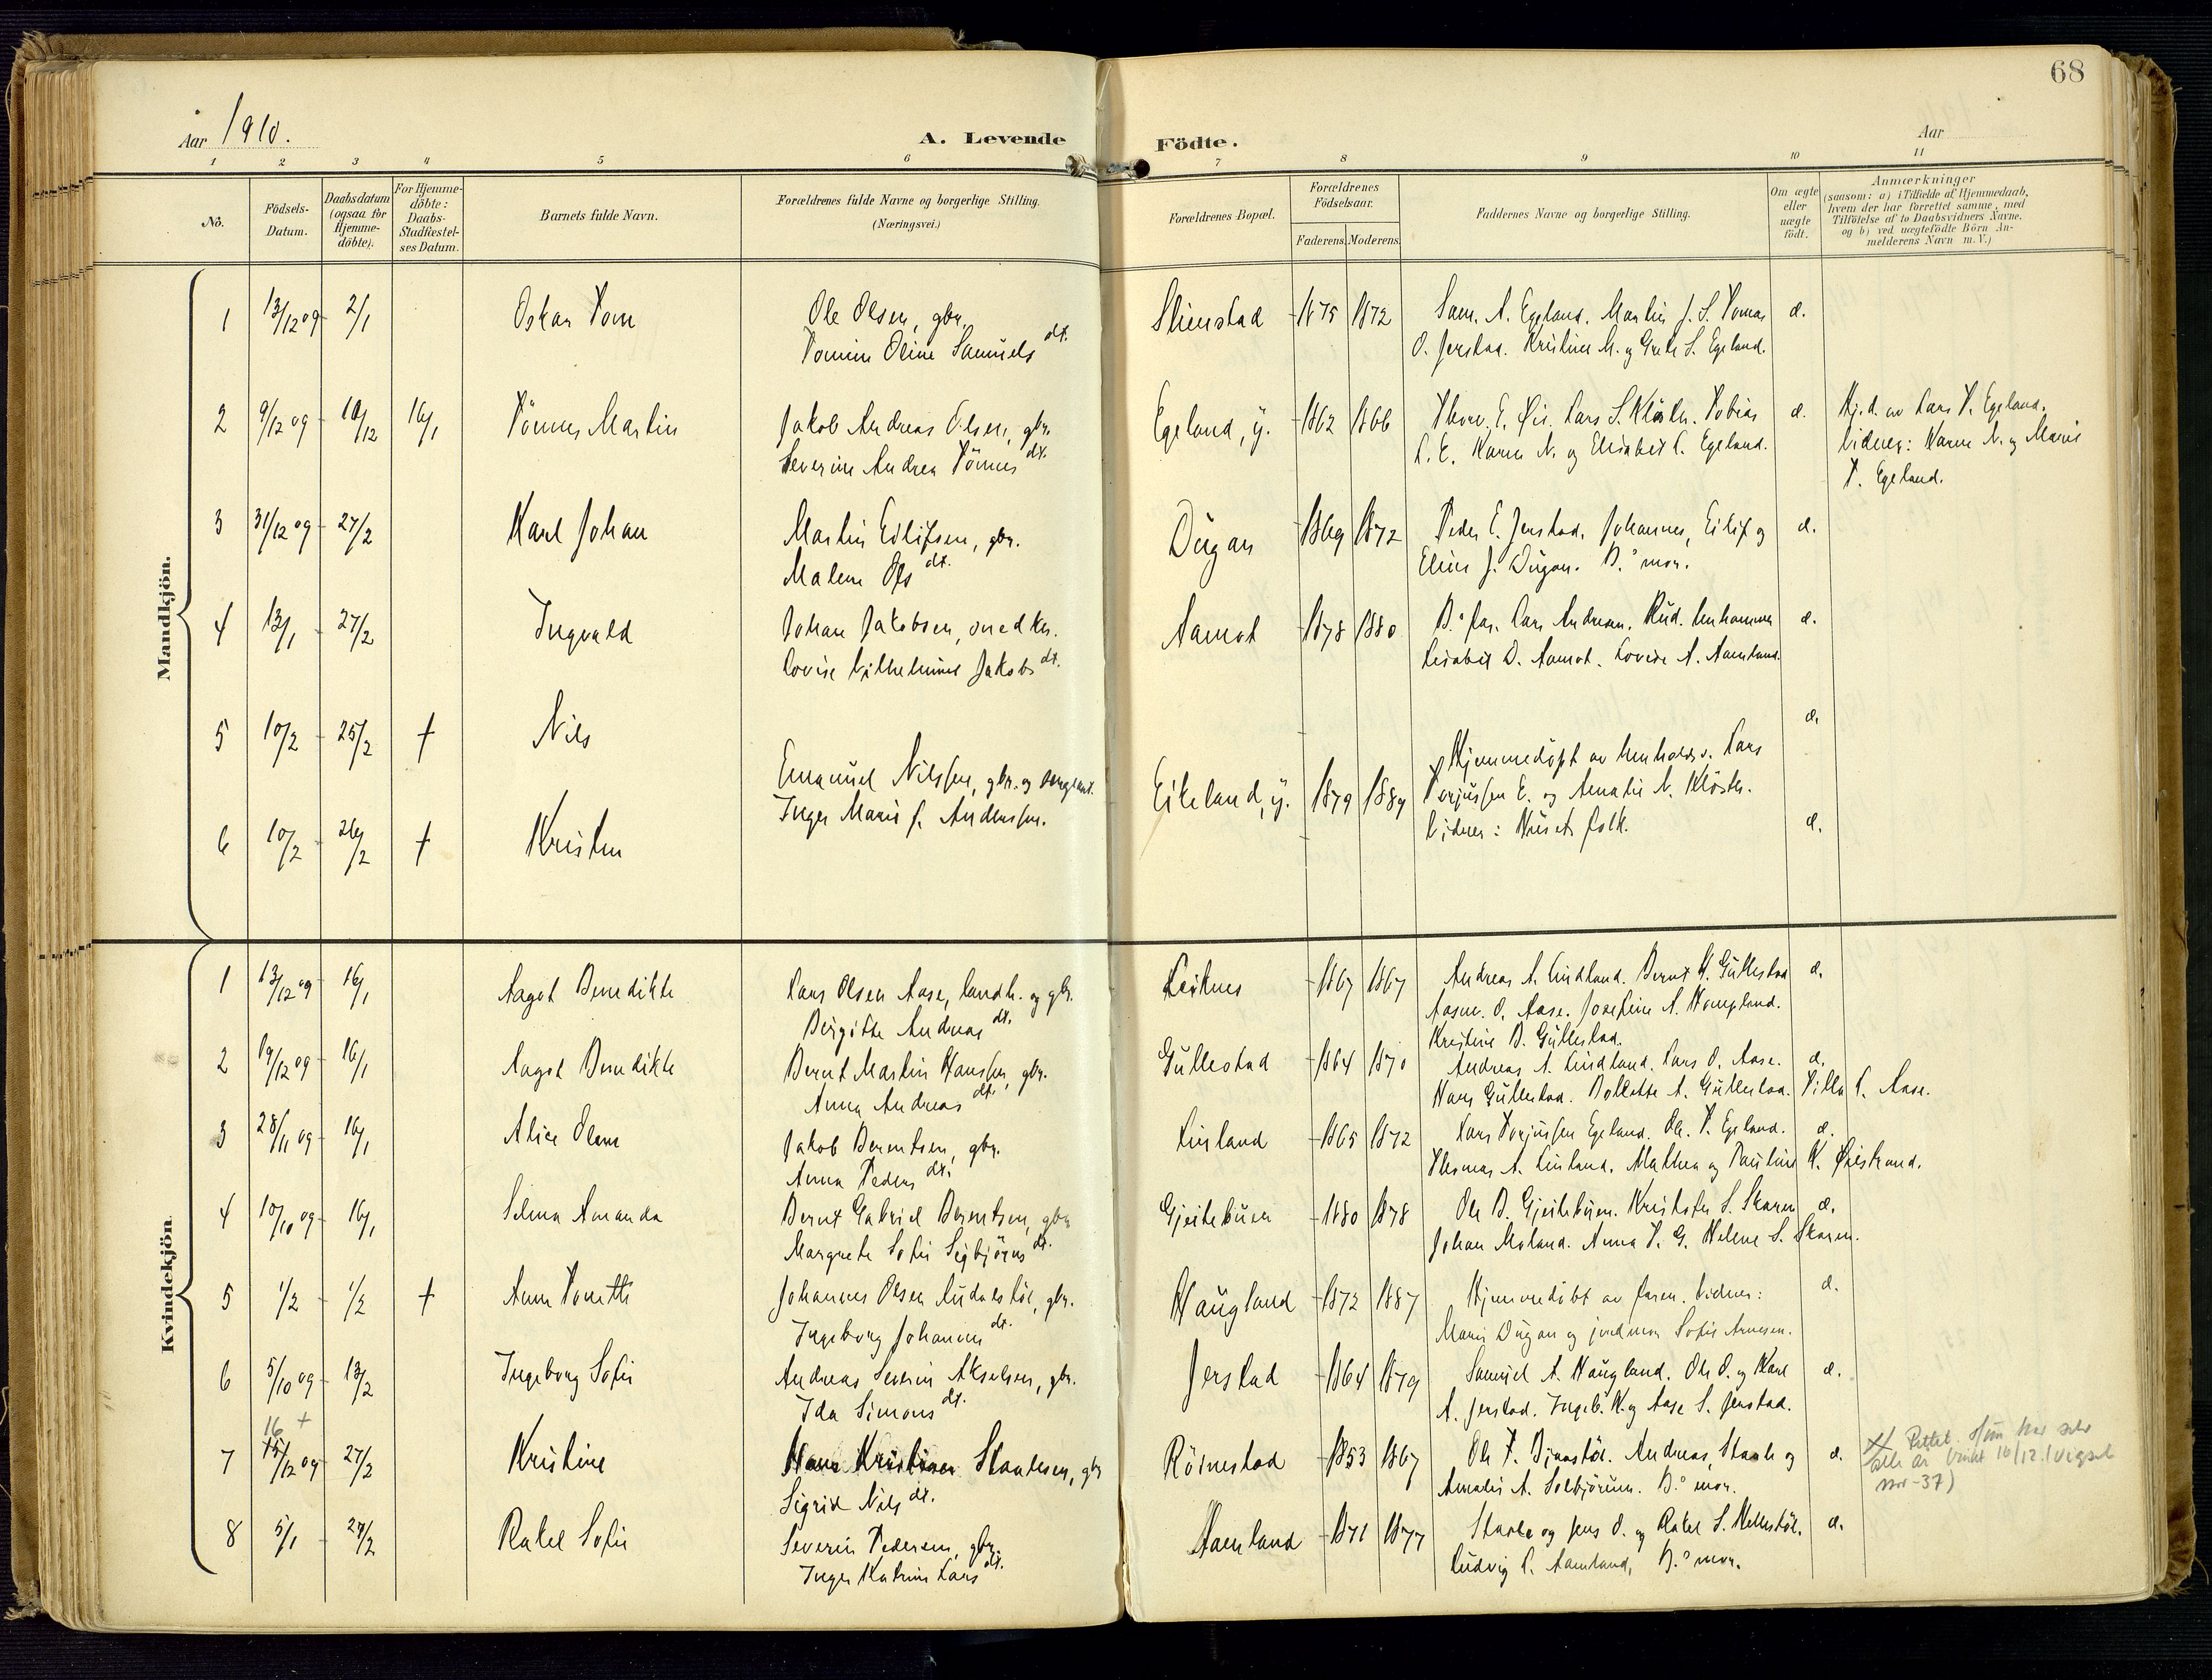 68
Aar 1910.
A. Levende Födte.
Aar
1 2 3 4 5 6 7 8 9 10 11
No.
Födsels-Datum.
Daabsdatum (ogsaa for Hjemme-döbte).
For Hjemme-döbte: Daabs-Stadfæstel-ses Datum.
Barnets fulde Navn.
Forældrenes fulde Navne og borgerlige Stilling.
(Næringsvei.)
Forældrenes Bopæl.
Forældrenes Födselsaar.
Faderens. Moderens.
Faddernes Navne og borgerlige Stilling.
Om ægte eller uægte födt.
Anmærkninger
(saasom: a) i Tilfælde af Hjemmedaab,
hvem der har forrettet samme, med
Tilföielse af to Daabsvidners Navne.
og b) ved uægtefödte Börn An-
melderens Navn m. V.)
Mandkjön.
1 13/12 09 2/1 Oskar Tom Ole Olsen, gbr. 1875 1872 Sam. A. Egeland. Martin J. S. Tomas æ.
Tomine Oline Samuels dt. O. Jerstad. Kristine M. og Grete S. Egeland.
2 9/12 09 10/12 16/1 Tönnes Martin Jakob Andreas Olsen, gbr. Egeland, y. 1862 1866 Lars S. Klöster. Tobias æ. Hj.d. av Lars T. Egeland.
Severine Andrea Tönnes dt. L. E. Karen N. og Elisabet L. Egeland. Vidner: Karen N. og Marie
T. Egeland.
3 31/12 09 27/2 Karl Johan Martin Eilifsen, gbr. Dugan 1869 1872 Peder E. Jerstad. Johannes, Eilif og æ.
Malene Ols dt. Eline J. Dugan. B.s mor.
4 13/1 27/2 Ingvald Johan Jakobsen, snedker. Aamot 1878 1880 B.s far. Lars Andreas. æ.
Lovise Vilhelmine Jakobs dt. Lisabet D. Aamot. Lovise A. Aamland.
5 10/2 25/2 + Nils æ.
Emanuel Nilssen, gbr. og Eikeland, y. 1879 1889 Hjemmedöpt av henholdsv. Lars
Inger Marie J. Anderssen. Torjussen E. og Amalie N. Klöster.
6 10/2 26/2 + Kristen Vidner: Husets folk. æ.
Kvindekjön.
1 13/12 09 16/1 Aagot Benedikte Lars Olsen Aase, landh. og gbr. Leiknes 1867 1867 Andreas A. Lindland. Bernt H. Gullestad æ.
Birgitte Andreas dt. Aasm. O. Aase. Josefine A. Haugland.
Kristine B. Gullestad.
2 19/12 09 16/1 Aagot Benedikte Bernt Martin Hanssen, gbr. Gullestad 1864 1870 Andreas A. Lindland. Lars O. Aase. æ.
Anna Andreas dt. Hans Gullestad. Bollette A. Gullestad. Tilla L. Aase.
3 28/11 09 16/1 Alice Olene Jakob Berentsen, gbr. Linland 1865 1872 Lars Torjussen Egeland. Ole T. Egeland. æ.
Anna Peders dt. Thomas A. Linland. Mathea og Pauline K. Öistrand.
4 10/10 09 16/1 Selma Amanda Bernt Gabriel Berntsen, gbr. Gjeitebuen 1880 1878 Ole B. Gjeitebuen. Kristofer S. Skaren æ.
Margrete Sofie Sigbjörns dt. Johan Moland. Anna T. G. Helene S. Skaren.
5 1/2 1/2 + Anne Tonette Johannes Olsen, gbr. Haugland 1872 1887 Hjemmedöbt av faren. Vidner: æ.
Ingeborg Johannes dt. Marie Dugan og jordmor Sofie Arnesen.
6 5/10 09 13/2 Ingeborg Sofie Andreas Severin Akselsen, gbr. Jerstad 1864 1879 Samuel A. Haugland. Ole O. og Karl æ.
Ida Simons dt. A. Jerstad. Ingeb. K. og Aase S. Jerstad.
16 +
7 15/12 09 27/2 Kristine Hans Kristian Staalesen, gbr Röinestad 1853 1867 Ole T. Andreas, Staale og æ. Rettet.
Sigrid Nils dt. Amalie A. Solbjörum. B.s mor. 16/12. (vigsel
nr -37)
8 5/1 27/2 Rakel Sofie Severin Pedersen, gbr. Aamland 1871 1877 Staale og Jens O. og Rakel S. Hellestöl. æ.
Inger Katrine Lars dt. Ludvig P. Aamland, B.s mor.